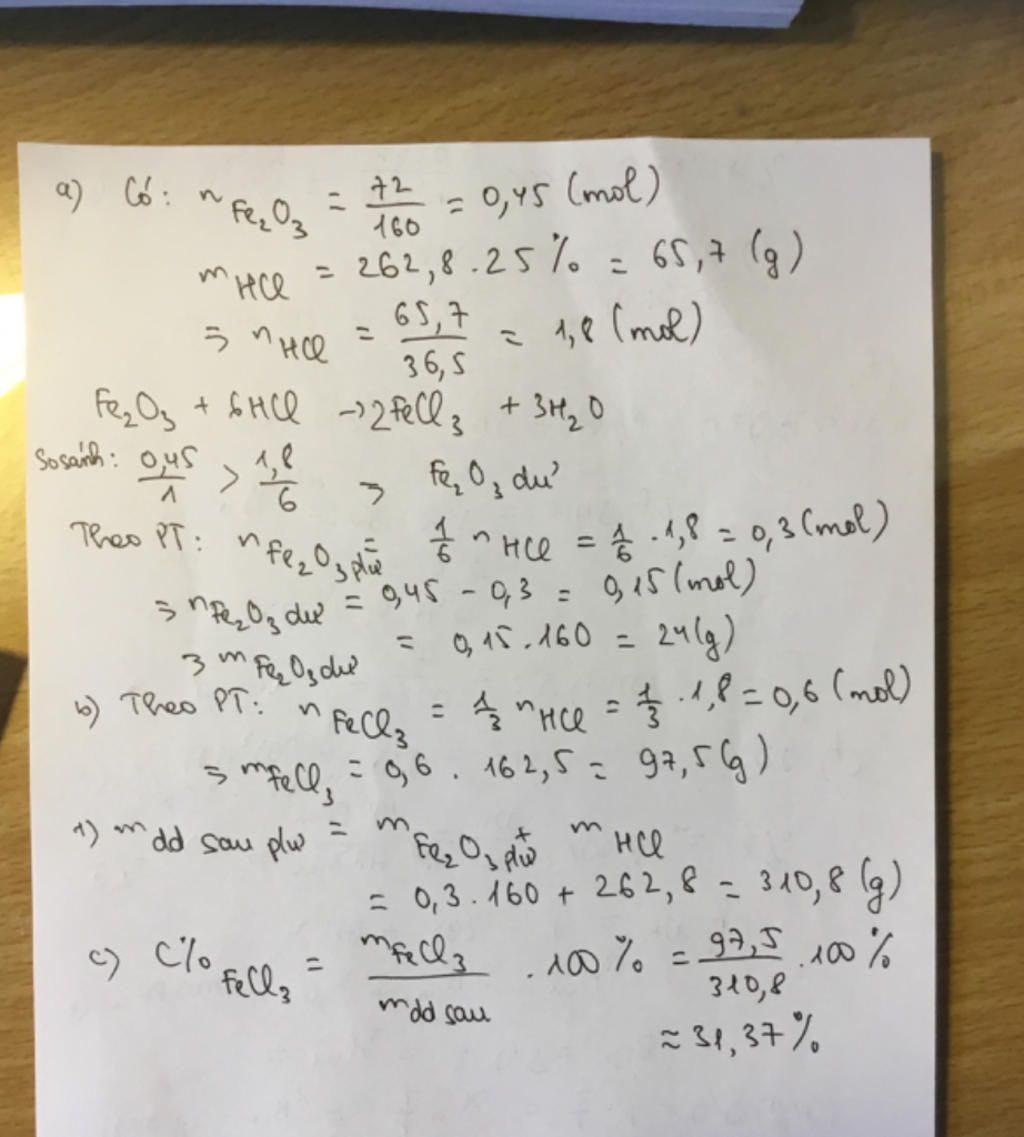 a) Có: n Fe₂O₃ = 72/160 = 0,45 (mol)
m HCl = 262,8 . 25 % = 65,7 (g)
⇒ n HCl = 65,7/36,5 = 1,8 (mol)
Fe₂O₃ + 6HCl → 2FeCl₃ + 3H₂O
So sánh: 0,45/1 > 1,8/6 ⇒ Fe₂O₃ dư
Theo PT: n Fe₂O₃ pư = 1/6 n HCl = 1/6 . 1,8 = 0,3 (mol)
⇒ n Fe₂O₃ dư = 0,45 - 0,3 = 0,15 (mol)
⇒ m Fe₂O₃ dư = 0,15 . 160 = 24 (g)
b) Theo PT: n FeCl₃ = 1/3 n HCl = 1/3 . 1,8 = 0,6 (mol)
⇒ m FeCl₃ = 0,6 . 162,5 = 97,5 (g)
1) m dd sau pư = m Fe₂O₃ pư + m HCl
= 0,3 . 160 + 262,8 = 310,8 (g)
c) C% FeCl₃ = m FeCl₃/m dd sau . 100 % = 97,5/310,8 . 100 %
≈ 31,37 %